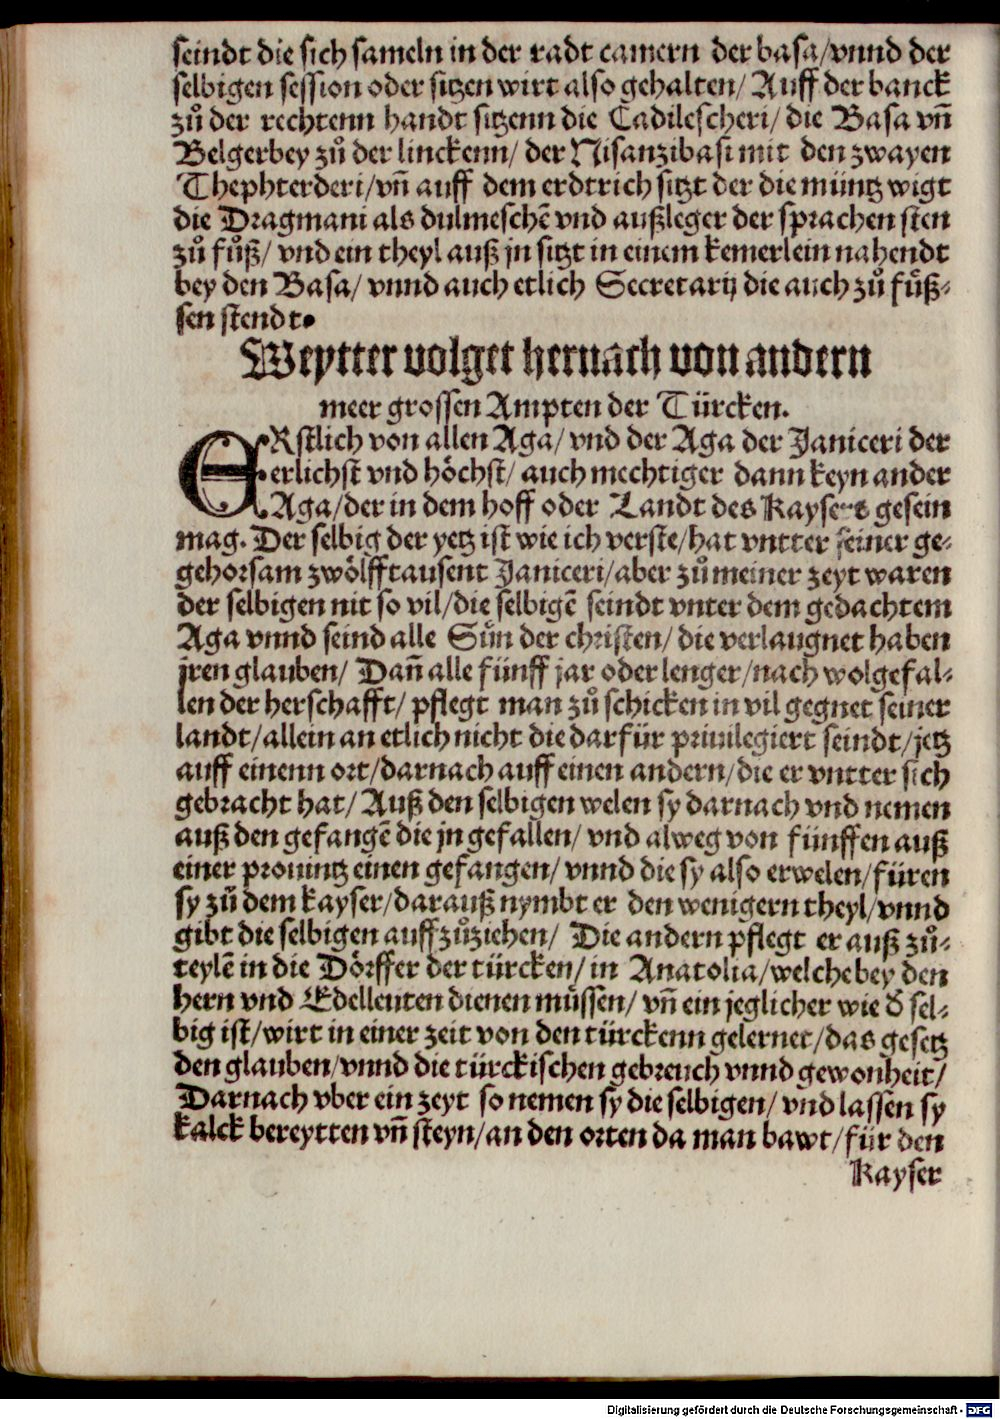 seindt die sich sameln in der radt camern der basa/vnnd der
selbigen session oder sitzen wirt also gehalten/ Auff der banck
zů der rechtenn handt sitzenn die Cadilescheri/ die Basa vñ
Belgerbey zů der linckenn/ der Nisanzibasi mit den zwayen
Thephterderi/vñ auff dem erdtrich sitzt der die müntz wigt
die Dragmani als dulmeschẽ vnd außleger der sprachen sten
zů fůß/ vnd ein theyl auß jn sitzt in einem kemerlein nahendt
bey den Basa/ vnnd auch etlich Secretarij die auch zů fůß-
sen stendt.
Weytter volget hernach von andern
meer grossen Ampten der Türcken.
ERstlich von allen Aga/ vnd der Aga der Janiceri der
erlichst vnd höchst/ auch mechtiger dann keyn ander
Aga/der in dem hoff oder Landt des Kaysers gesein
mag. Der selbig der yetz ist wie ich verste/hat vntter seiner ge-
gehorsam zwölfftausent Janiceri/aber zů meiner zeyt waren
der selbigen nit so vil/die selbigẽ seindt vnter dem gedachtem
Aga vnnd seind alle Sün der christen/ die verlaugnet haben
jren glauben/ Dañ alle fünff jar oder lenger/nach wolgefal-
len der herschafft/ pflegt man zů schicken in vil gegnet seiner
landt/allein an etlich nicht die darfür priuilegiert seindt/jetz
auff einenn ort/darnach auff einen andern/die er vntter sich
gebracht hat/ Auß den selbigen welen sy darnach vnd nemen
auß den gefangẽ die jn gefallen/ vnd alweg von fünffen auß
einer prouintz einen gefangen/ vnnd die sy also erwelen/füren
sy zů dem kayser/darauß nymbt er den wenigern theyl/vnnd
gibt die selbigen auffzůziehen/ Die andern pflegt er auß zů-
teylẽ in die Dörffer der türcken/ in Anatolia/welche bey den
hern vnd Edelleuten dienen müssen/ vñ ein jeglicher wie d̕ sel-
big ist/wirt in einer zeit von den türckenn gelernet/das gesetz
den glauben/vnnd die türckischen gebreuch vnnd gewonheit/
Darnach vber ein zeyt so nemen sy die selbigen/ vnd lassen sy
kalck bereytten vñ steyn/an den orten da man bawt/für den
Kayser
Digitalisierung gefördert durch die Deutsche Forschungsgemeinschaft - DFG